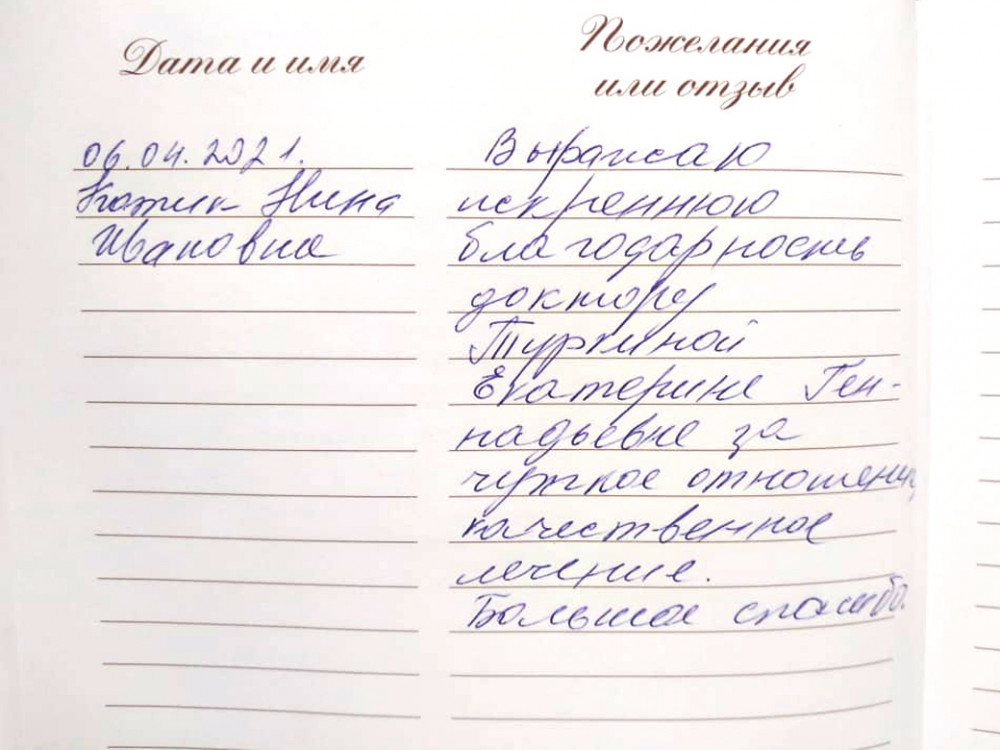 Дата и имя
Пожелания
или отзыв
06.04.2021.
Нина
Ивановна
Выражаю
искреннюю
благодарность
доктору
Туркиной
Екатерине Ген-
надьевне за
чуткое отношение,
качественное
лечение.
Большое спасибо.